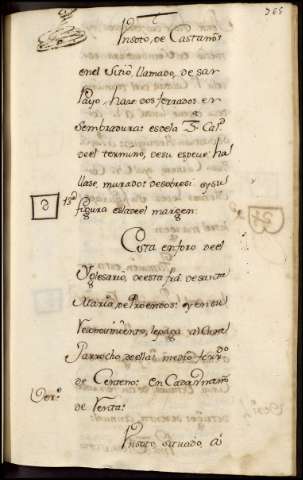 365
Un soto, de Castaños
en el Sitio, llamado, de San
Payo, haze dos ferrados en
Sembradura: es de la 3ª Calᵈ
de el termino, de su especie: ha
llase, murado de sobre si: y su
15ª figura es la de el margen:
Esta en foro de el
Yglesario, de esta frã de Santa
Maria, de Proendos: y en su
Reconocimiento, le paga al Cura
Parrocho de ella: medio ferrᵈᵒ
de Centeno: en Cada un año
de Renta:
Un soto situado, a